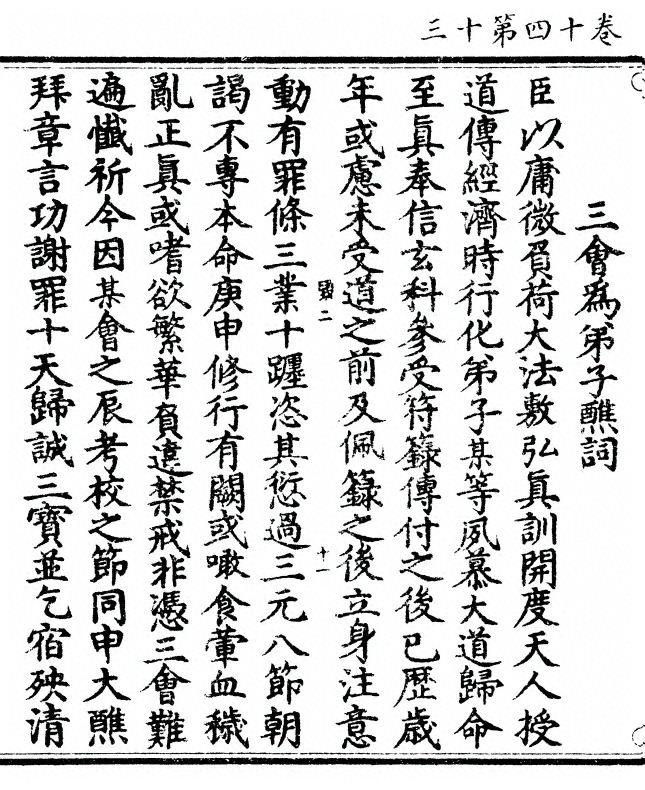 卷十四第十三
三會爲弟子醮詞
臣以庸微負荷大法敷弘眞訓開度天人授
道傳經濟時行化弟子某等夙慕大道歸命
至眞奉信玄科參受符籙傳付之後已歷歲
年或慮未受道之前及佩籙之後立身注意
毀二
十一
動有罪條三業十躔恣其愆過三元八節朝
謁不專本命庚申修行有闕或噉食葷血穢
亂正眞或嗜欲繁華貪違禁戒非憑三會難
遍懺祈今因某會之辰考校之節同申大醮
拜章言功謝罪十天歸誠三寶並乞宿殃清